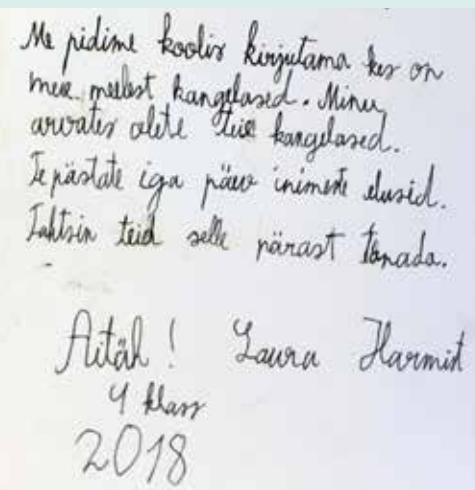 Me pidime koolis kirjutama kes on
meie meelest kangelased. Minu
arvates olete teie kangelased.
Te päästate iga päev inimeste elusid.
Tahtsin teid selle pärast tänada.
Aitäh! Laura Harmist
4 klass
2018